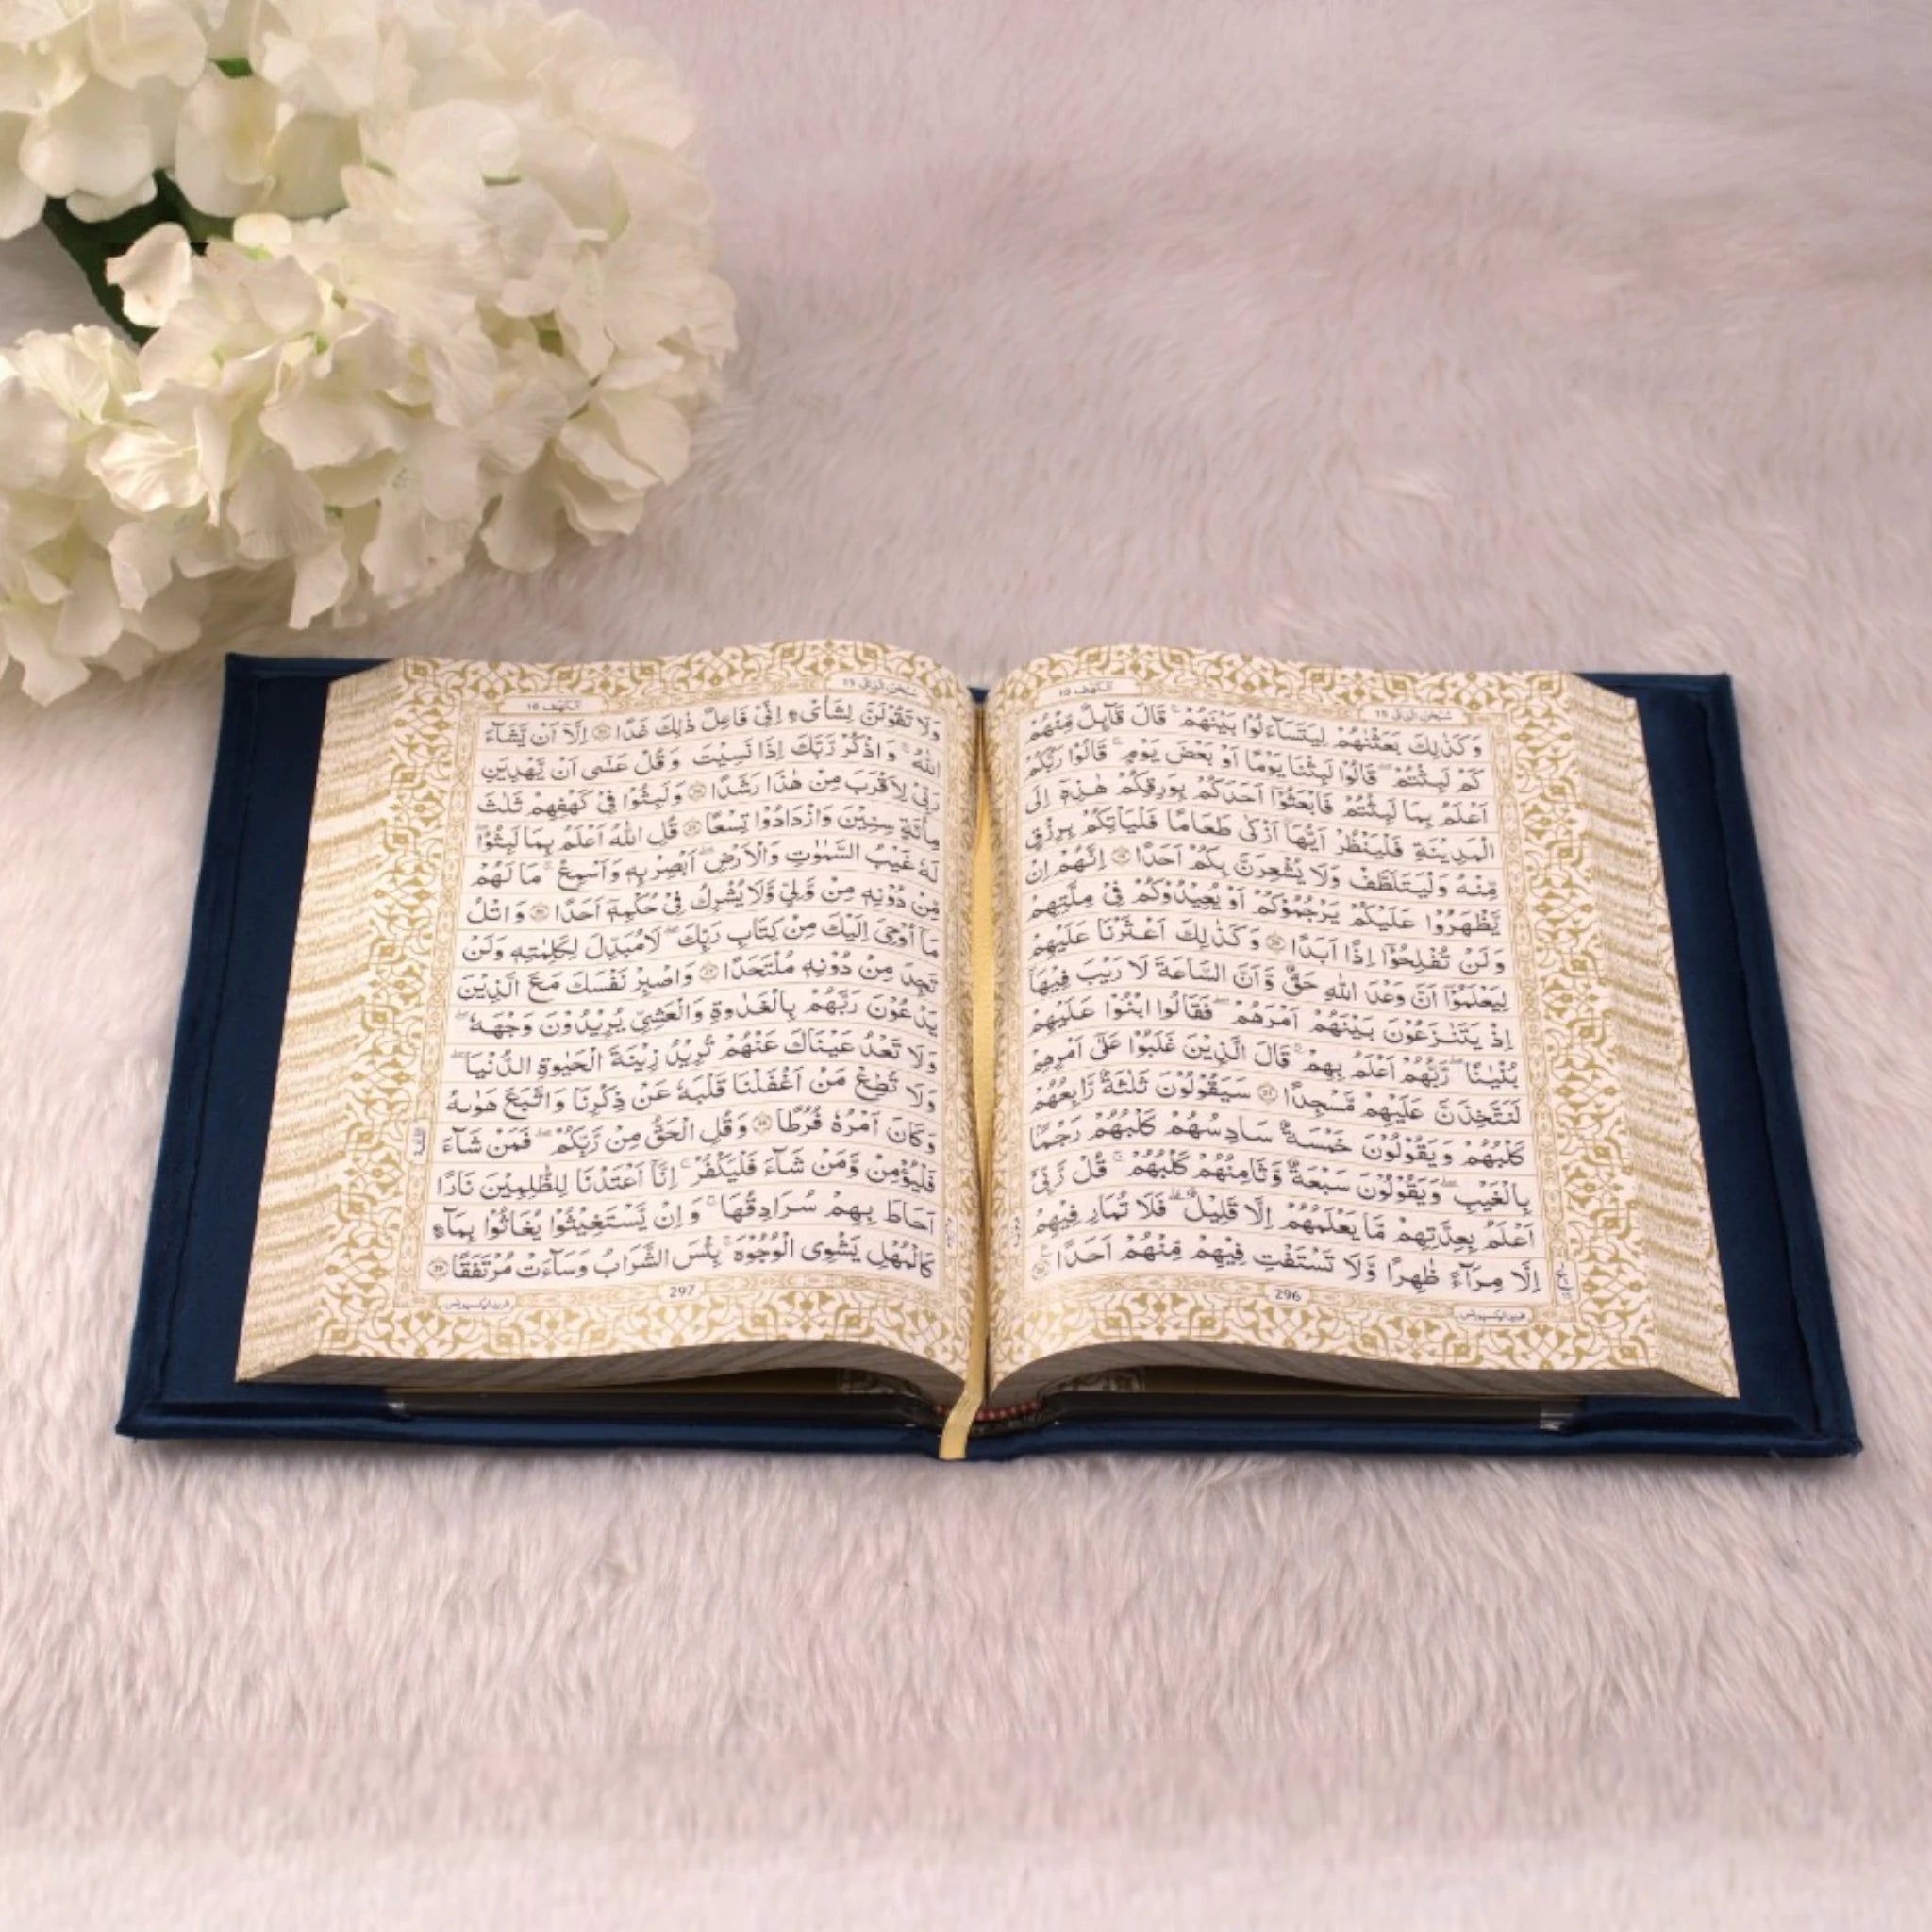 سُبْحٰنَ الَّذِیْۤ 15
اَلْكَهْف 18
وَكَذٰلِكَ بَعَثْنٰهُمْ لِیَتَسَآءَلُوْا بَیْنَهُمْ ؕ قَالَ قَآىِٕلٌ مِّنْهُمْ
كَمْ لَبِثْتُمْ ؕ قَالُوْا لَبِثْنَا یَوْمًا اَوْ بَعْضَ یَوْمٍ ؕ قَالُوْا رَبُّكُمْ
اَعْلَمُ بِمَا لَبِثْتُمْ ؕ فَابْعَثُوْۤا اَحَدَكُمْ بِوَرِقِكُمْ هٰذِهٖۤ اِلَى
الْمَدِیْنَةِ فَلْیَنْظُرْ اَیُّهَاۤ اَزْكٰى طَعَامًا فَلْیَاْتِكُمْ بِرِزْقٍ
مِّنْهُ وَلْیَتَلَطَّفْ وَلَا یُشْعِرَنَّ بِكُمْ اَحَدًا ۝ اِنَّهُمْ اِنْ
یَّظْهَرُوْا عَلَیْكُمْ یَرْجُمُوْكُمْ اَوْ یُعِیْدُوْكُمْ فِیْ مِلَّتِهِمْ
وَلَنْ تُفْلِحُوْۤا اِذًا اَبَدًا ۝ وَكَذٰلِكَ اَعْثَرْنَا عَلَیْهِمْ
لِیَعْلَمُوْۤا اَنَّ وَعْدَ اللّٰهِ حَقٌّ وَّاَنَّ السَّاعَةَ لَا رَیْبَ فِیْهَا
اِذْ یَتَنَازَعُوْنَ بَیْنَهُمْ اَمْرَهُمْ فَقَالُوا ابْنُوْا عَلَیْهِمْ
بُنْیَانًا ؕ رَبُّهُمْ اَعْلَمُ بِهِمْ ؕ قَالَ الَّذِیْنَ غَلَبُوْا عَلٰۤى اَمْرِهِمْ
لَنَتَّخِذَنَّ عَلَیْهِمْ مَّسْجِدًا ۝ سَیَقُوْلُوْنَ ثَلٰثَةٌ رَّابِعُهُمْ
كَلْبُهُمْ وَیَقُوْلُوْنَ خَمْسَةٌ سَادِسُهُمْ كَلْبُهُمْ رَجْمًۢا
بِالْغَیْبِ ۚ وَیَقُوْلُوْنَ سَبْعَةٌ وَّثَامِنُهُمْ كَلْبُهُمْ ؕ قُلْ رَّبِّیْۤ
اَعْلَمُ بِعِدَّتِهِمْ مَّا یَعْلَمُهُمْ اِلَّا قَلِیْلٌ ۫ فَلَا تُمَارِ فِیْهِمْ
اِلَّا مِرَآءً ظَاهِرًا وَّلَا تَسْتَفْتِ فِیْهِمْ مِّنْهُمْ اَحَدًا ۝
296
سُبْحٰنَ الَّذِیْۤ 15
اَلْكَهْف 18
وَلَا تَقُوْلَنَّ لِشَایْءٍ اِنِّیْ فَاعِلٌ ذٰلِكَ غَدًا ۝ اِلَّاۤ اَنْ یَّشَآءَ
اللّٰهُ ؗ وَاذْكُرْ رَّبَّكَ اِذَا نَسِیْتَ وَقُلْ عَسٰۤى اَنْ یَّهْدِیَنِ
رَبِّیْ لِاَقْرَبَ مِنْ هٰذَا رَشَدًا ۝ وَلَبِثُوْا فِیْ كَهْفِهِمْ ثَلٰثَ
مِائَةٍ سِنِیْنَ وَازْدَادُوْا تِسْعًا ۝ قُلِ اللّٰهُ اَعْلَمُ بِمَا لَبِثُوْا ۚ
لَهٗ غَیْبُ السَّمٰوٰتِ وَالْاَرْضِ ؕ اَبْصِرْ بِهٖ وَاَسْمِعْ ؕ مَا لَهُمْ
مِّنْ دُوْنِهٖ مِنْ وَّلِیٍّ ؗ وَّلَا یُشْرِكُ فِیْ حُكْمِهٖۤ اَحَدًا ۝ وَاتْلُ
مَاۤ اُوْحِیَ اِلَیْكَ مِنْ كِتَابِ رَبِّكَ ؕ لَا مُبَدِّلَ لِكَلِمٰتِهٖ وَلَنْ
تَجِدَ مِنْ دُوْنِهٖ مُلْتَحَدًا ۝ وَاصْبِرْ نَفْسَكَ مَعَ الَّذِیْنَ
یَدْعُوْنَ رَبَّهُمْ بِالْغَدٰوةِ وَالْعَشِیِّ یُرِیْدُوْنَ وَجْهَهٗ
وَلَا تَعْدُ عَیْنَاكَ عَنْهُمْ تُرِیْدُ زِیْنَةَ الْحَیٰوةِ الدُّنْیَا ۚ
وَلَا تُطِعْ مَنْ اَغْفَلْنَا قَلْبَهٗ عَنْ ذِكْرِنَا وَاتَّبَعَ هَوٰىهُ
وَكَانَ اَمْرُهٗ فُرُطًا ۝ وَقُلِ الْحَقُّ مِنْ رَّبِّكُمْ ۫ فَمَنْ شَآءَ
فَلْیُؤْمِنْ وَّمَنْ شَآءَ فَلْیَكْفُرْ ۙ اِنَّاۤ اَعْتَدْنَا لِلظّٰلِمِیْنَ نَارًا
اَحَاطَ بِهِمْ سُرَادِقُهَا ؕ وَاِنْ یَّسْتَغِیْثُوْا یُغَاثُوْا بِمَآءٍ
كَالْمُهْلِ یَشْوِی الْوُجُوْهَ ؕ بِئْسَ الشَّرَابُ وَسَآءَتْ مُرْتَفَقًا ۝
297